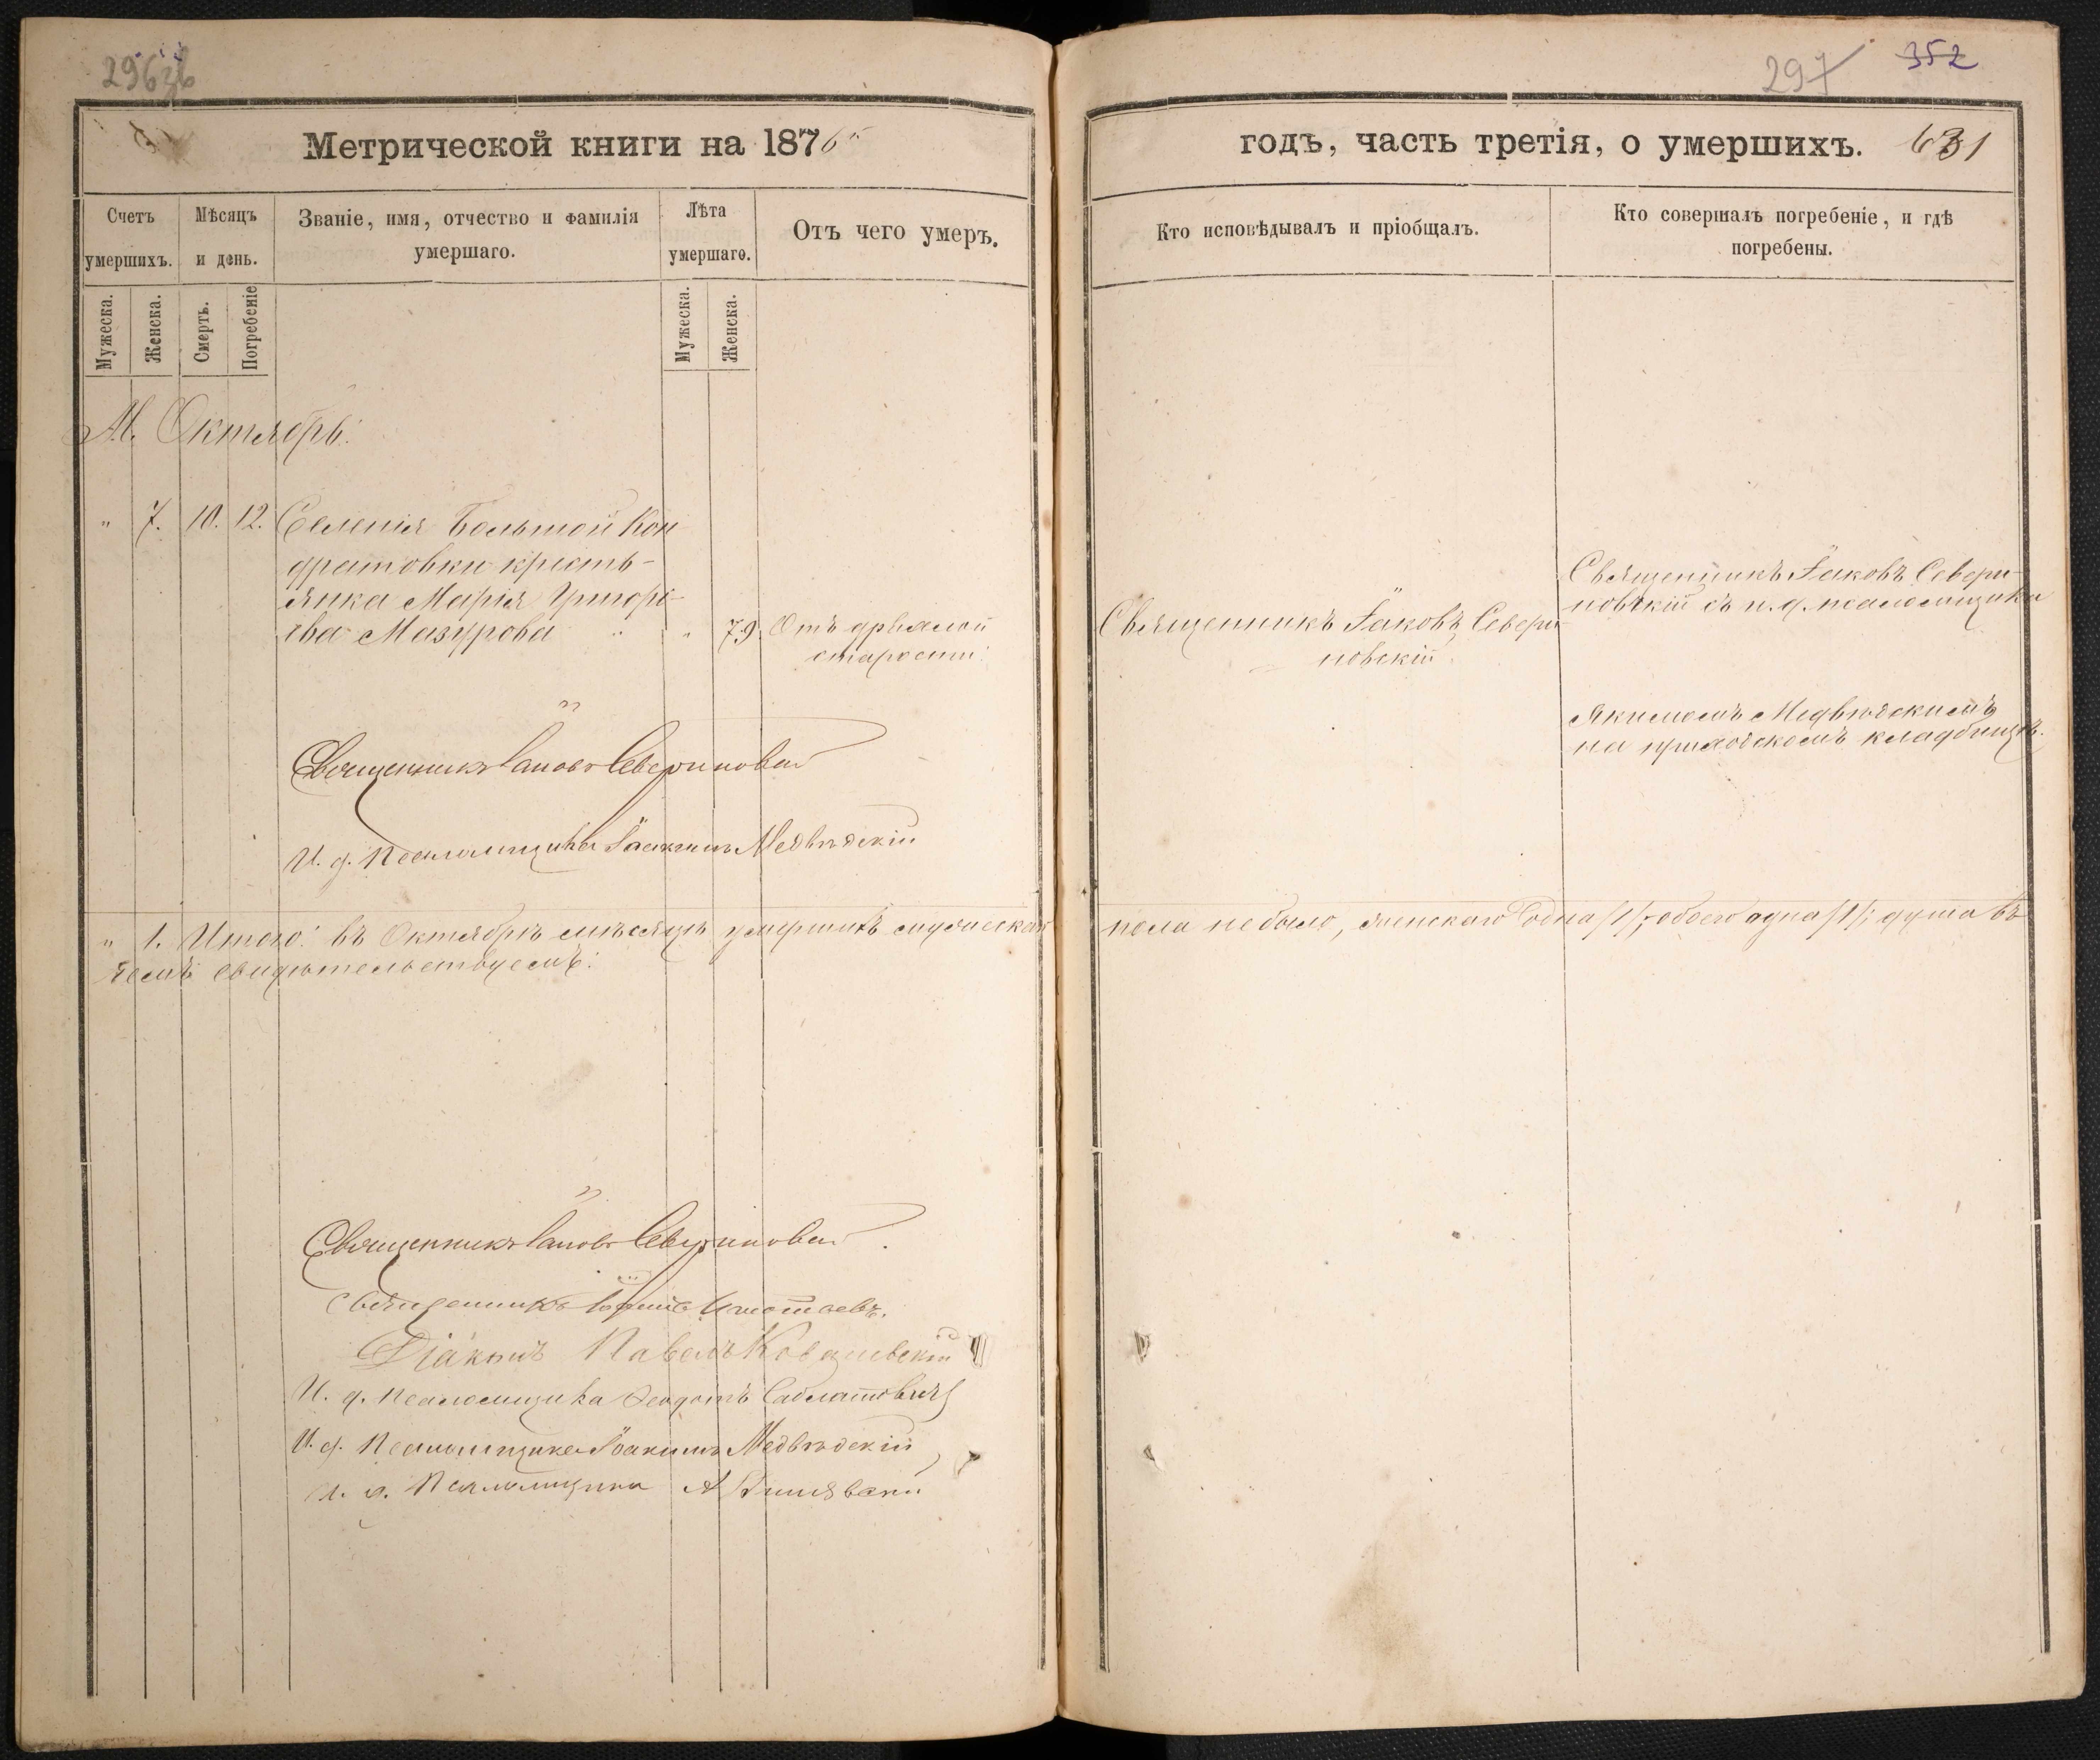 296
297
352
Метрической книги на 1876
годъ, часть третія, о умершихъ.
631
Счетъ умершихъ.
Мѣсяцъ и день.
Званіе, имя, отчество и фамилія умершаго.
Лѣта умершаго.
Отъ чего умеръ.
Кто исповѣдывалъ и пріобщалъ.
Кто совершалъ погребеніе, и гдѣ погребены.
Мужеска.
Женска.
Смерть.
Погребеніе
Мужеска.
Женска.
М. Октябрь:
" 7. 10. 12. Селенія Большой Кон
дратовки кресть-
янка Марія Григорі-
ева Мазурова " " 79. Отъ дряхлой
старости.
Священникъ Іаковъ Севери-
новскій
Священникъ Іаковъ Севери-
новскій съ и. д. псаломщика
Якимомъ Медвѣдскимъ
на приходскомъ кладбищѣ.
Священникъ Іаковъ Севериновскій
И. д. Псаломщика Іоакимъ Медвѣдскій
" 1. Итого: въ Октябрѣ мѣсяцѣ умершихъ мужескаго пола не было, женскаго одна /1/, обоего одна /1/; душа въ
чемъ свидѣтельствуемъ:
Священникъ Іаковъ Севериновскій.
Священникъ
Діаконъ Павелъ
И. д. Псаломщика Феодотъ
И. д. Псаломщика Іоакимъ Медвѣдскій
И. д. Псаломщика А